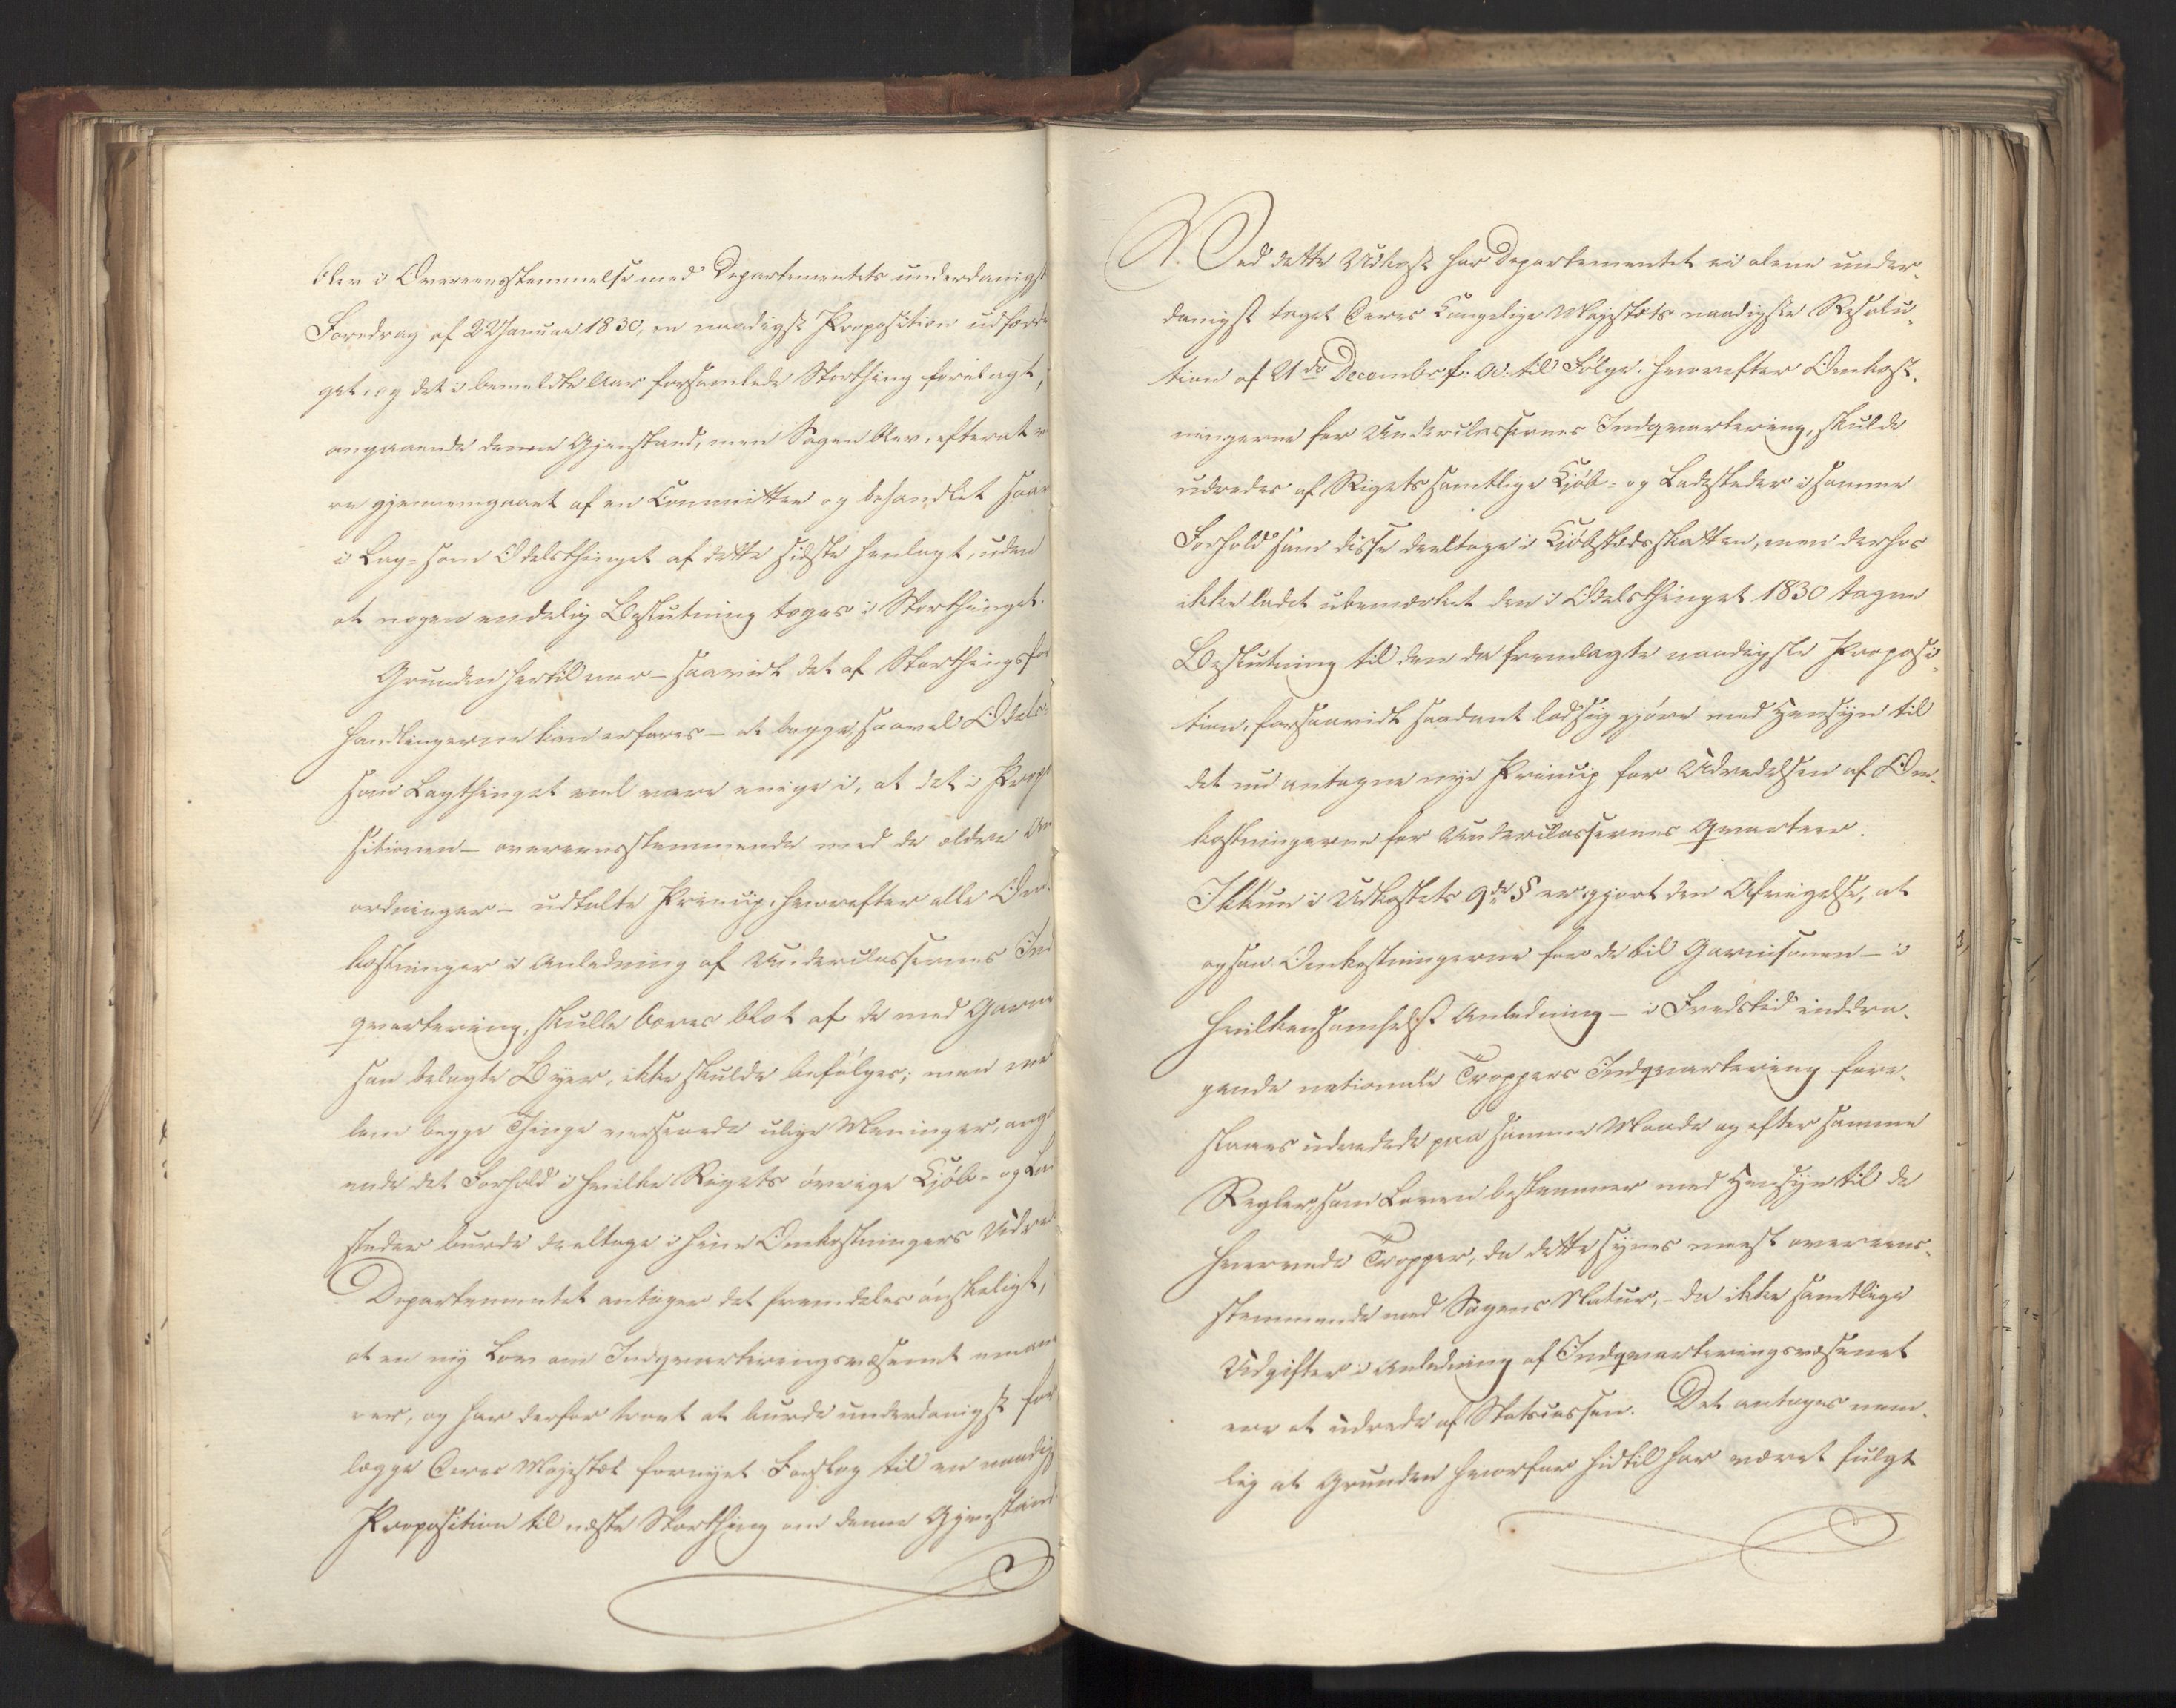 blev i Overeensstemmelse med Departementets underdanigst
Foredrag af 22 Januar 1830, en naadigst Proposition udfærdi
get, og det i bemeldte Aar forsamlede Storthing forelagt,
angaaende denne Gjenstand, men Sagen blev, efterat v
re gjennemgaaet af en Committee og behandlet saav
i Lag- som Odelsthinget af dette sidste henlagt, uden
at nogen endelig Beslutning toges i Storthinget.
Grunden hertil var – saavidt det af Storthingsfor
handlingerne kan erfares – at begge saavel Odels-
som Lagthinget vel vare enige i, at det i Propo
sitionen – overeensstemmende med de ældre An
ordninger – udtalte Princip, hvorefter alle Om-
kostninger i Anledning af Underclassernes Ind
qvartering, skulle bæres blot af de med Garni
son belagte Byer, ikke skulde befølges; men mel
lem begge Thinge versserede ulige Meninger, anga
ende det Forhold i hvilke Rigets øvrige Kjøb- og La
steder burde deeltage i hine Omkostningers Udred
Departementet antager det fremdeles ønskeligt,
at en ny Lov om Indqvarteringsvæsenet emane
rer, og har derfor troet at burde underdanigst for
lægge Deres Majestæt fornyet Forslag til en naadig
Proposition til næste Storthing om denne Gjenstand
A. Ved dette Udkast har Departementet ei alene under-
danigst taget Deres Kongelige Majestæts naadigste Resolu-
tion af 21de December f: A: til Følge, hvorefter Omkost-
ningerne for Underclassernes Indqvartering, skulde
udredes af Rigets samtlige Kjøb- og Ladesteder i samme
Forhold som disse deeltage i Kjøbstedsskatten, men derhos
ikke ladet ubemærket den i Odelsthinget 1830 tagne
Beslutning til den da fremlagte naadigste Proposi-
tion, forsaavidt saadant lod sig gjøre med Hensyn til
det nu antagne nye Princip for Udredelsen af Om-
kostningerne for Underclassernes Qvarteer.
Ikkun i Udkastets 9de § er gjort den Afvigelse, at
ogsaa Omkostningerne for de til Garnisonen – i
hvilkensomhelst Anledning – i Fredstid inddra-
gende nationale Troppers Indqvartering fore-
slaaes udredede paa samme Maade og efter samme
Regler, som Loven bestemmer med Hensyn til de
hvervede Tropper, da dette synes meest overeens-
stemmende med Sagens Natur, – da ikke samtlige
Udgifter i Anledning af Indqvarteringsvæsenet
ere at udrede af Statscassen. Det antages nem-
lig at Grunden hvorfor hidtil har været fulgt